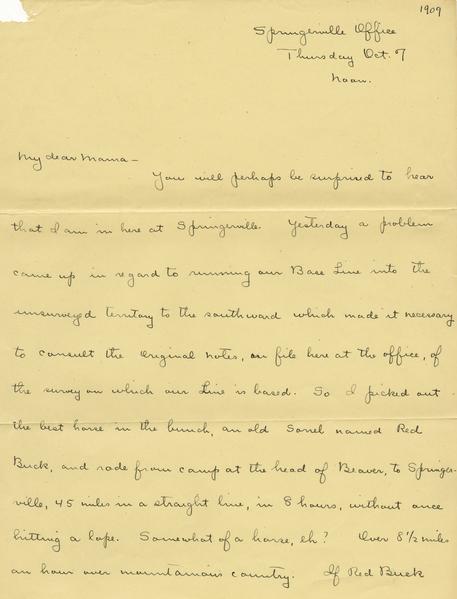 1909
Springerville Office
Thursday Oct. 7
Noon.
My dear Mama –
You will perhaps be surprised to hear
that I am in here at Springerville. Yesterday a problem
came up in regard to running our Base Line into the
unsurveyed territory to the southward which made it necessary
to consult the original notes, on file here at the office, of
the survey on which our Line is based. So I picked out
the best horse in the bunch, an old Sorrel named Red
Buck, and rode from camp at the head of Beaver, to Springer-
ville, 45 miles in a straight line, in 8 hours, without once
hitting a lope. Somewhat of a horse, eh? Over 8 1/2 miles
an hour over mountainous country. If Red Buck